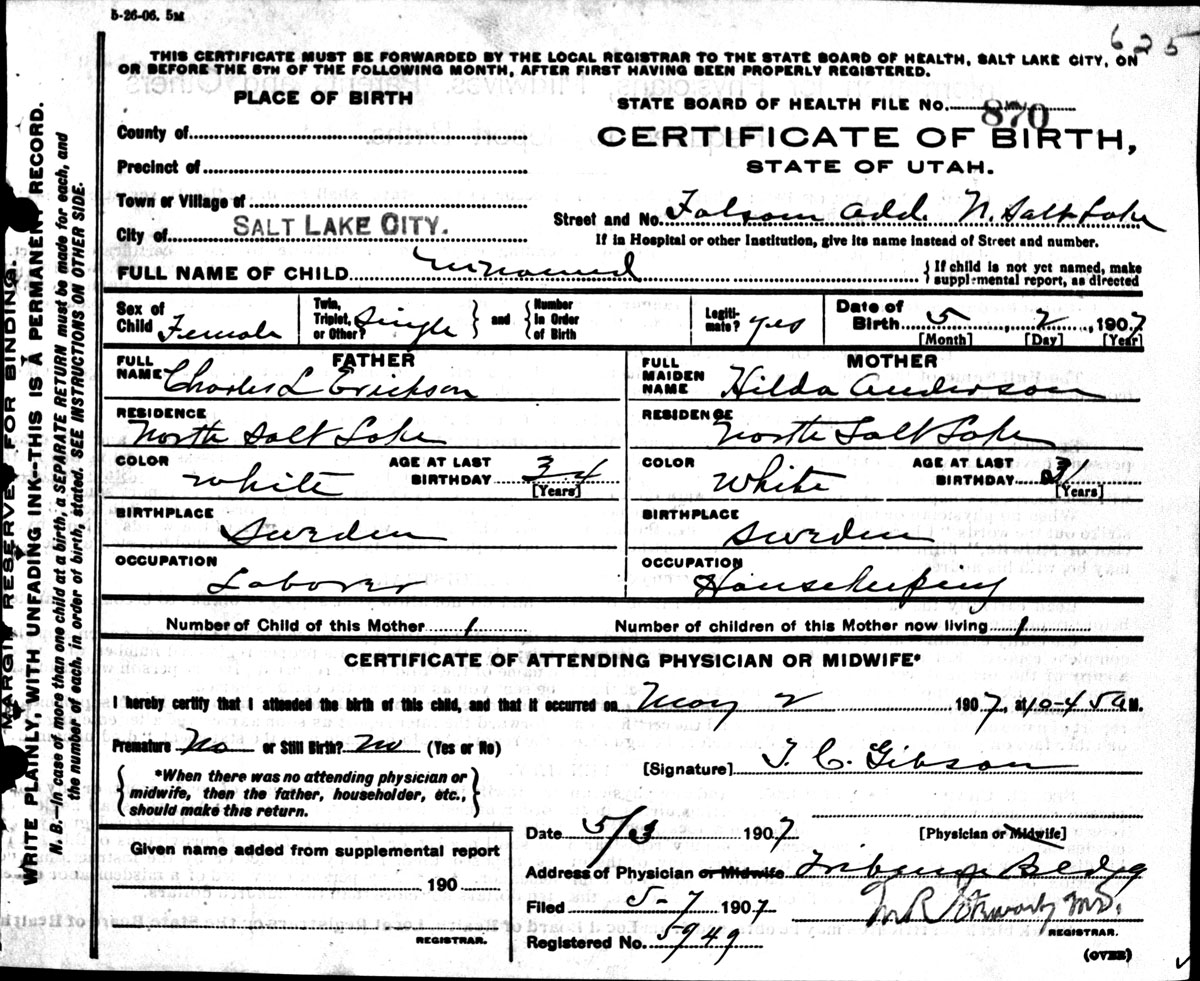 5-26-06. 5M
625
THIS CERTIFICATE MUST BE FORWARDED BY THE LOCAL REGISTRAR TO THE STATE BOARD OF HEALTH, SALT LAKE CITY, ON
OR BEFORE THE 5TH OF THE FOLLOWING MONTH, AFTER FIRST HAVING BEEN PROPERLY REGISTERED.
PLACE OF BIRTH
STATE BOARD OF HEALTH FILE No. 870
County of
CERTIFICATE OF BIRTH,
Precinct of
STATE OF UTAH.
Town or Village of
Street and No. Folsom Add. N. Salt Lake
City of SALT LAKE CITY.
If in Hospital or other Institution, give its name instead of Street and number.
FULL NAME OF CHILD Unnamed { If child is not yet named, make supplemental report, as directed
Sex of Child Female Twin, Triplet, or Other? Single } and { Number in Order of Birth Legiti-mate? yes Date of Birth 5 2, 1907 [Month] [Day] [Year]
FATHER MOTHER
FULL NAME Charles L Erickson FULL MAIDEN NAME Hilda Anderson
RESIDENCE RESIDENCE
North Salt Lake North Salt Lake
COLOR White AGE AT LAST BIRTHDAY 34 [Years] COLOR White AGE AT LAST BIRTHDAY 31 [Years]
BIRTHPLACE BIRTHPLACE
Sweden Sweden
OCCUPATION OCCUPATION
Laborer Housekeeping
Number of Child of this Mother 1 Number of children of this Mother now living 1
CERTIFICATE OF ATTENDING PHYSICIAN OR MIDWIFE*
I hereby certify that I attended the birth of this child, and that it occurred on May 2 1907, at 10-45 a M.
Premature No or Still Birth? No (Yes or No)
[Signature] T. C. Gibson
{ *When there was no attending physician or midwife, then the father, householder, etc., should make this return. }
Date 5/3 1907 [Physician or Midwife]
Given name added from supplemental report
Address of Physician or Midwife Tribune Bldg
190
Filed 5-7 1907 M R Stewart M.D.
REGISTRAR.
REGISTRAR.
Registered No. 5949
(OVER)
MARGIN RESERVE FOR BINDING.
WRITE PLAINLY, WITH UNFADING INK--THIS IS A PERMANENT RECORD.
N. B.--In case of more than one child at a birth, a SEPARATE RETURN must be made for each, and
the number of each, in order of birth, stated. SEE INSTRUCTIONS ON OTHER SIDE.